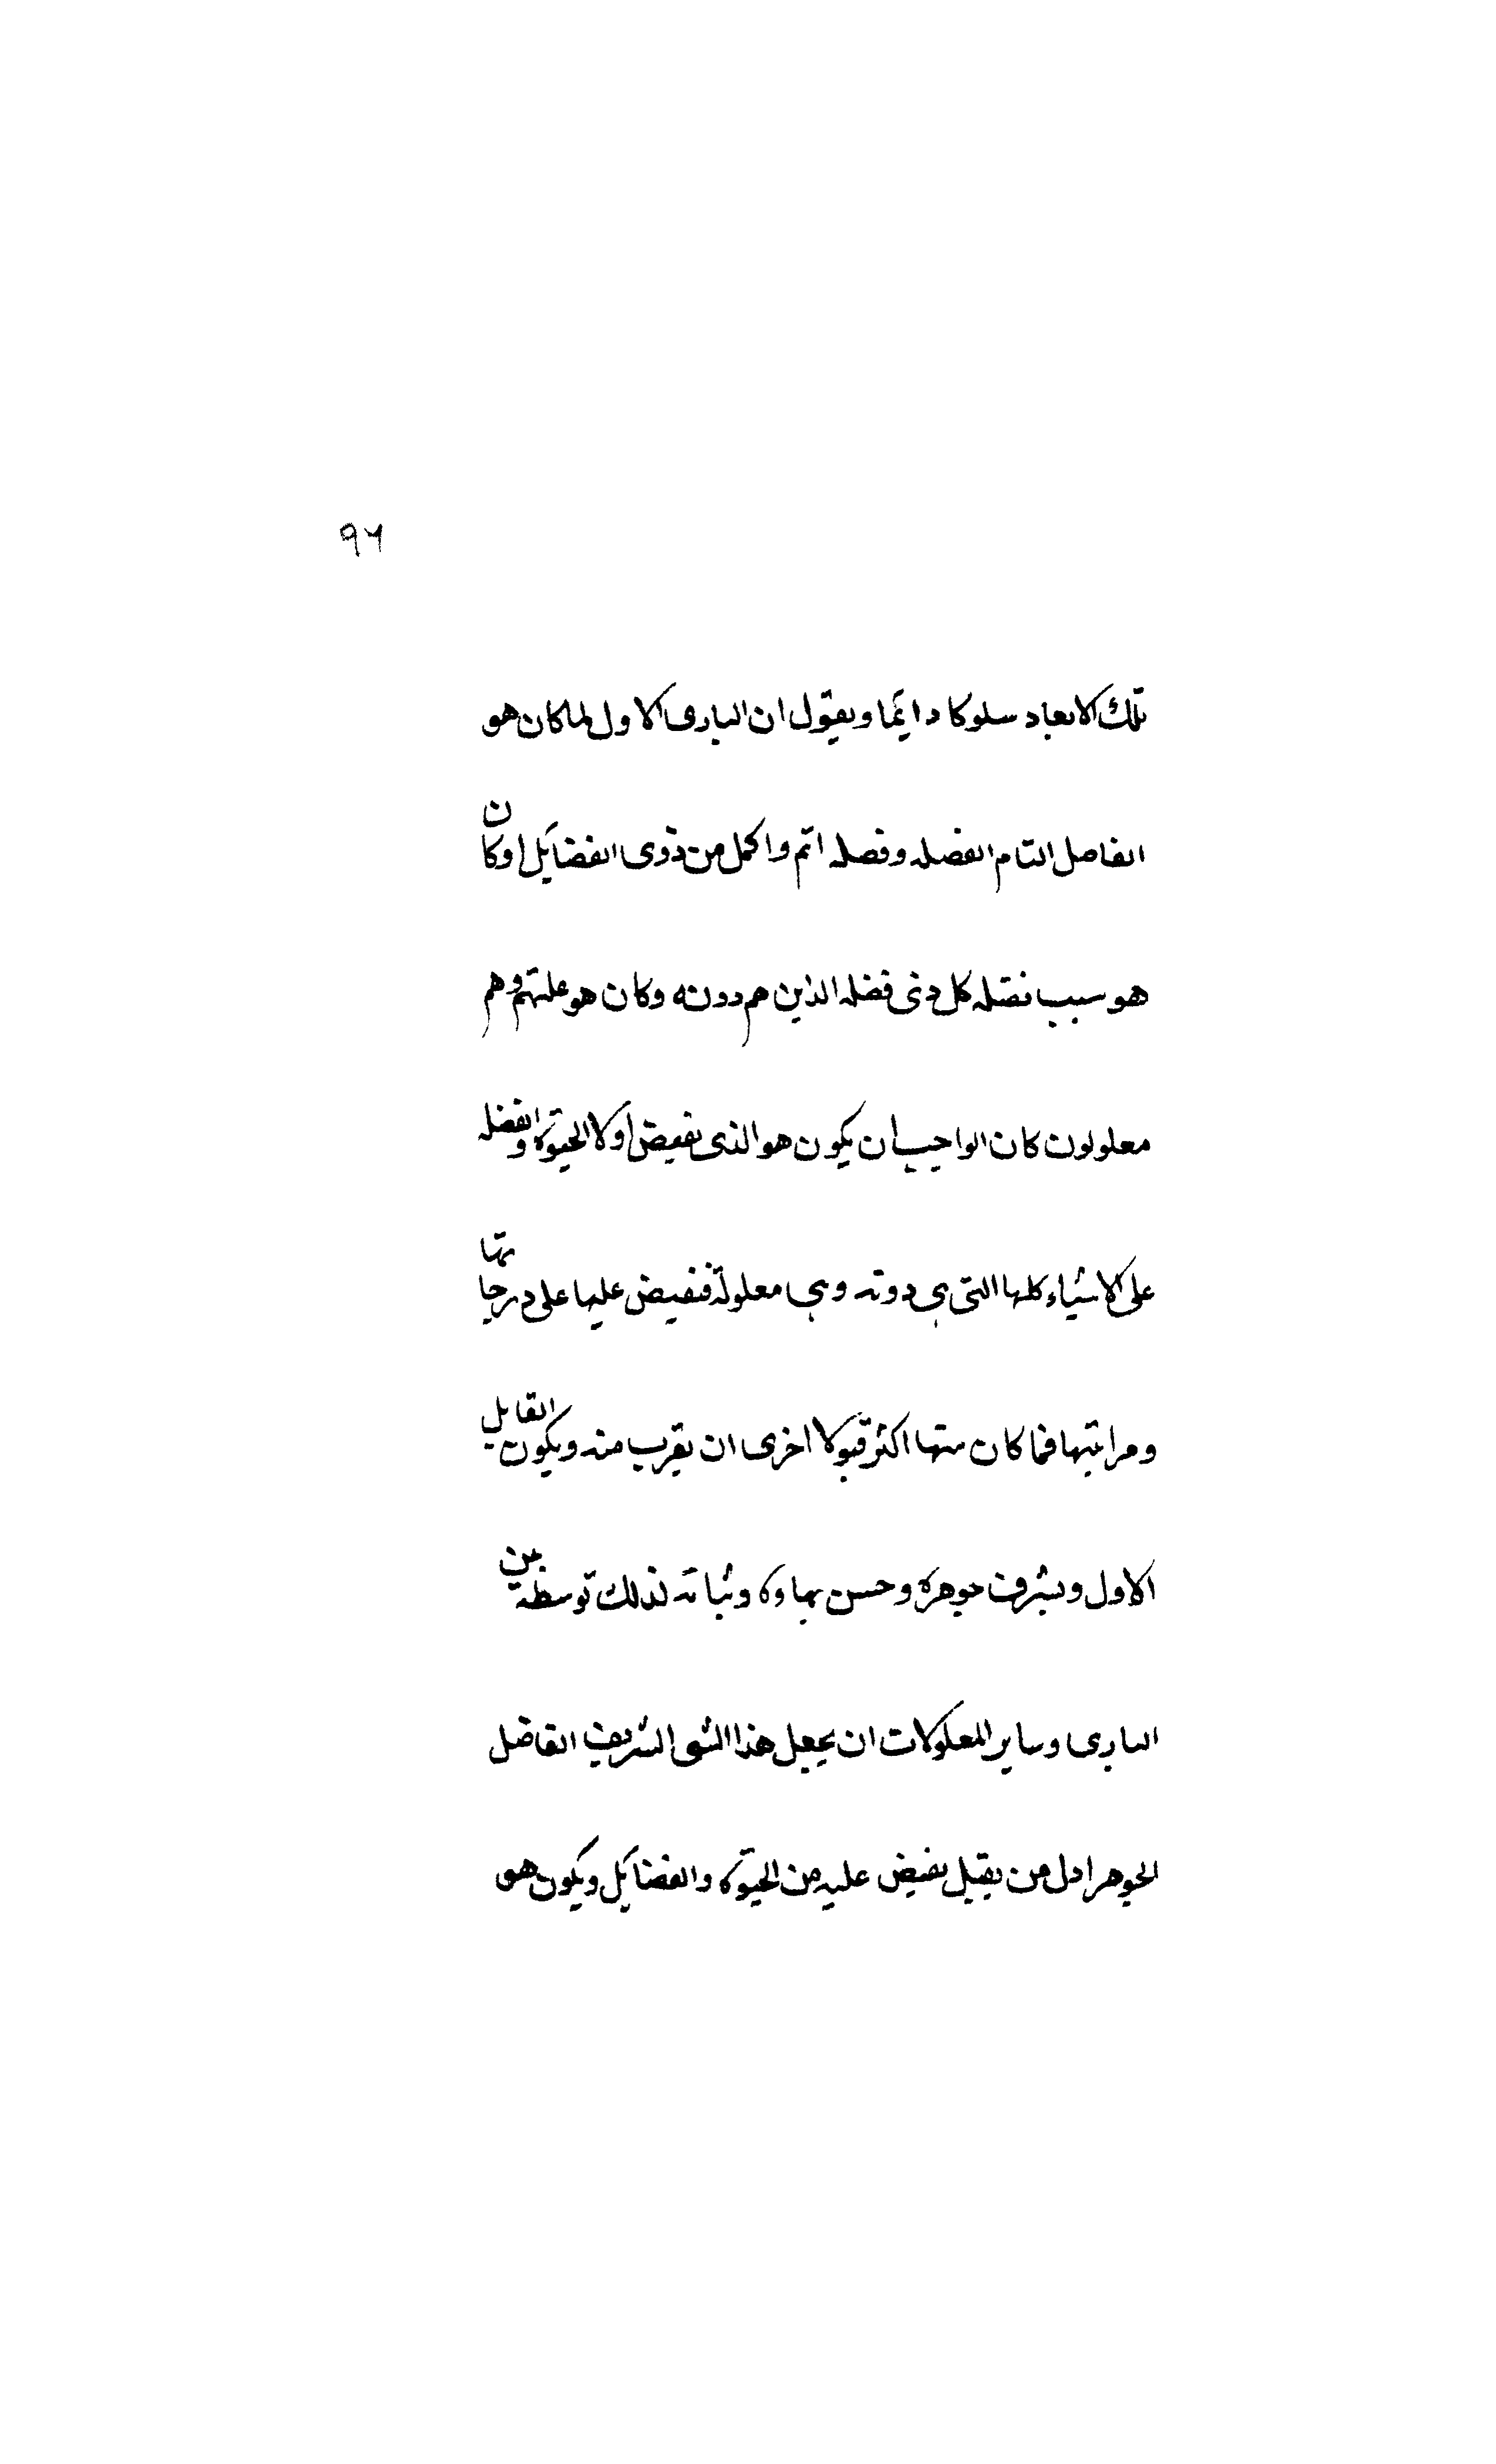 ٩٢
تلك الابعاد سلوكا دايما ويقول ان البارى الاول لما كان هو
الفاضل التام الفضله وفضله اتم واكمل من ذوى الفضايل اوكان
هو سبب فضله كل ذى فضله الذين هم دونه وكان هو علتهم وهم
معلولون كان الواجب ان يكون هو الذى يفيض اولا الحيوة والفضله
على الاشياء كلها التى هى دونه وهى معلولة فيفيض عليها على درجاتها
ومراتبها فما كان منها اكثر قبولا اخرى ان يقرب منه ويكون القابل
الاول وبشرف جوهره وحسن بهاوه وثباته لذلك توسطه بين
البارى وساير المعلولات ان يجعل هذا الشى الشريف الفاضل
الجوهر اول من يقبل يفيض عليه من الحيوة والفضايل ويكون هو